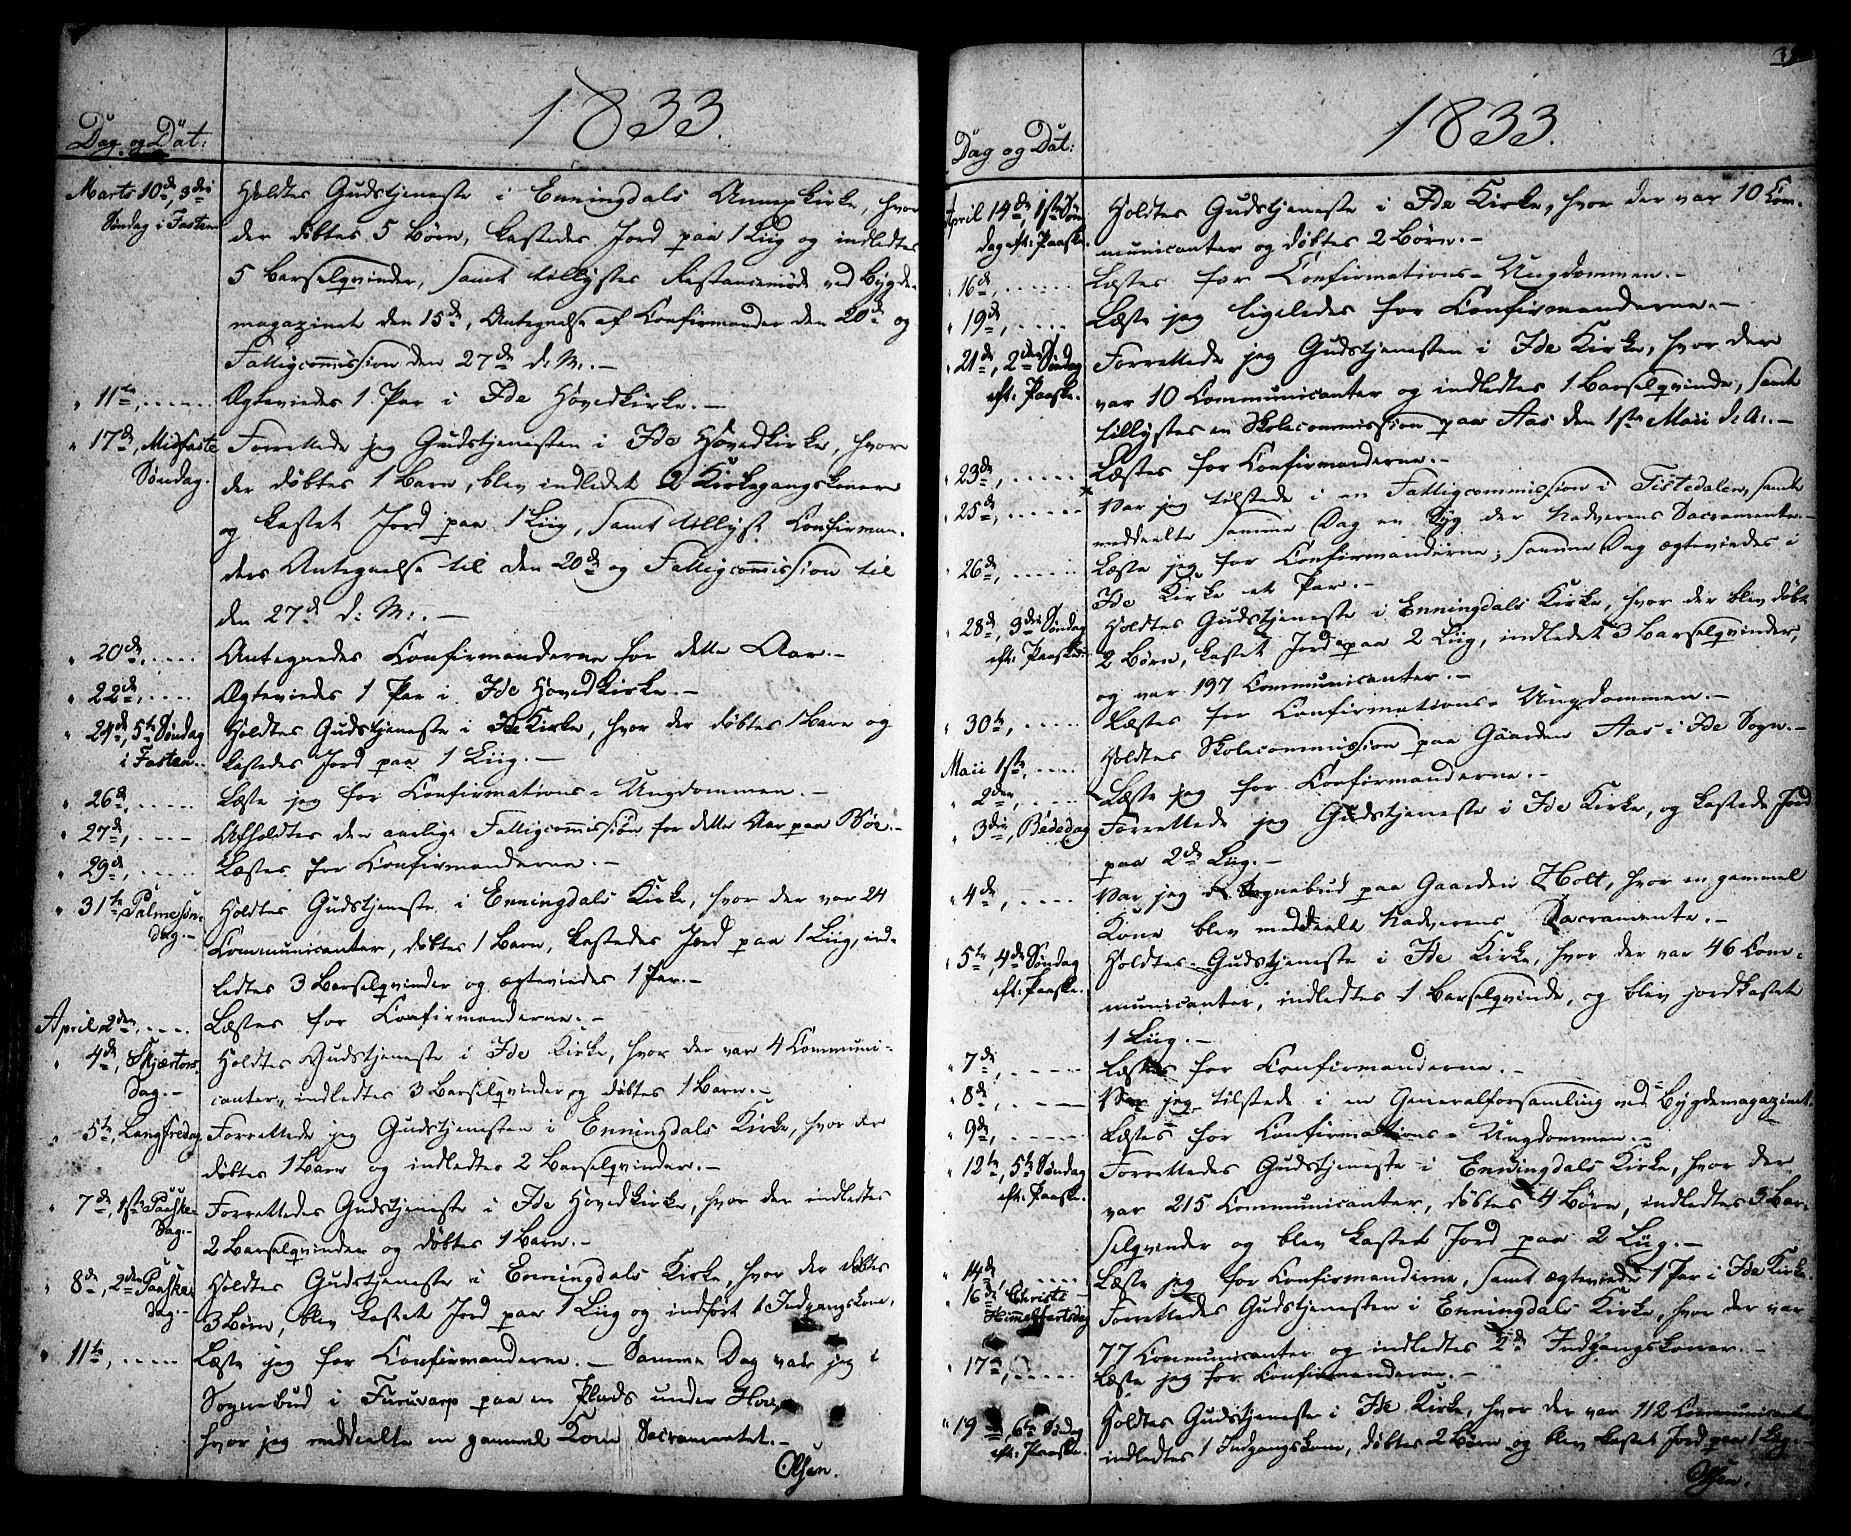 1833.
Dag og Dat:
Marts 10de, 3die Holdtes Gudstjeneste i Enningdals Annexkirke, hvor
Søndag i Fasten der døbtes 5 Børn, kastedes Jord paa 1 Liig og indledtes
5 Barselqvinder, samt tillystes Restancemøde ved Bygde-
magazinet den 15de, Antegnelse af Confirmander den 20de og
Fattigcommission den 27de d. M. –
" 11te, ..... Ægteviedes 1 Par i Ide Hovedkirke. –
" 17de, Midfaste Forrettede jeg Gudstjenesten i Ide Hovedkirke, hvor
Søndag. der døbtes 1 Barn, blev indledet 2 Kirkegangskoner
og kastet Jord paa 1 Liig, samt tillyst Confirman-
ders Antegnelse til den 20de og Fattigcommission til
den 27de d. M. –
" 20de, ..... Antegnedes Confirmanderne for dette Aar. –
" 22de, ..... Ægteviedes 1 Par i Ide Hovedkirke. –
" 24de, 5te Søndag Holdtes Gudstjeneste i Ide Kirke, hvor der døbtes 1 Barn og
i Fasten. kastedes Jord paa 1 Liig. –
" 26de, ..... Læste jeg for Confirmations-Ungdommen. –
" 27de, ..... Afholdtes den aarlige Fattigcommission for dette Aar paa Bøe. –
" 29de, ..... Læstes for Confirmanderne. –
" 31te, Palmesøn- Holdtes Gudstjeneste i Enningdals Kirke, hvor der var 24
dag. – Communicanter, døbtes 1 Barn, kastedes Jord paa 1 Liig, ind-
ledtes 3 Barselqvinder og ægteviedes 1 Par. –
April 2den, ..... Læstes for Confirmanderne. –
" 4de, Skjærtors- Holdtes Gudstjeneste i Ide Kirke, hvor der var 4 Communi-
Dag. – canter, indledtes 3 Barselqvinder og døbtes 1 Barn. –
" 5te, Langfredag Forrettede jeg Gudstjenesten i Enningdals Kirke, hvor der
døbtes 1 Barn og indledtes 2 Barselqvinder. –
" 7de, 1ste Paaske- Forrettedes Gudstjeneste i Ide Hovedkirke, hvor der indledtes
Dag. – 2 Barselqvinder og døbtes 1 Barn. –
" 8de, 2den Paaske- Holdtes Gudstjeneste i Enningdals Kirke, hvor der døbtes
dag. – 3 Børn, blev kastet Jord paa 1 Liig og indført 1 Indgangskone.
" 11te, ..... Læste jeg for Confirmanderne. – Samme Dag var jeg i
Sognebud i Furuvarp paa en Plads under Hov,
hvor jeg meddeelte en gammel Kone Sacramentet. –
Olsen.
1833.
Dag og Dat:
April 14de, 1ste Søn- Holdtes Gudstjeneste i Ide Kirke, hvor der var 10 Com-
dag eft: Paaske. municanter og døbtes 2 Børn. –
" 16de, ..... Læstes for Confirmations-Ungdommen. –
" 19de, ..... Læste jeg ligeledes for Confirmanderne. –
" 21de, 2den Søndag Forrettede jeg Gudstjenesten i Ide Kirke, hvor der
eft: Paaske. var 10 Communicanter og indledtes 1 Barselqvinde, samt
tillystes en Skolecommission paa Aas den 1ste Maii d. A. –
" 23de, ..... Læstes for Confirmanderne. –
" 25de, ..... Var jeg tilstede i en Fattigcommission i Tistedalen, samt
meddeelte samme Dag en Syg der Nadverens Sacramente. –
" 26de, ..... Læste jeg for Confirmanderne; samme Dag ægteviedes i
Ide Kirke et Par. –
" 28de, 3die Søndag Holdtes Gudstjeneste i Enningdals Kirke, hvor der blev døbt
eft: Paaske. 2 Børn, kastet Jord paa 2 Liig, indledet 3 Barselqvinder,
og var 197 Communicanter. –
" 30te, ..... Læstes for Confirmations-Ungdommen. –
Maii 1ste, ..... Holdtes Skolecommission paa Gaarden Aas i Ide Sogn. –
" 2den, ..... Læste jeg for Confirmanderne. –
" 3die, Bededag Forrettede jeg Gudstjeneste i Ide Kirke, og kastede Jord
paa 2de Liig. –
" 4de, ..... Var jeg i Sognebud paa Gaarden Holt, hvor en gammel
Kone blev meddeelt Nadverens Sacramente. –
" 5te, 4de Søndag Holdtes Gudstjeneste i Ide Kirke, hvor der var 46 Com-
eft: Paaske. municanter, indledtes 1 Barselqvinde, og blev jordkastet
1 Liig. –
" 7de, ..... Læstes for Confirmanderne. –
" 8de, ..... Var jeg tilstede i en Generalforsamling ved Bygdemagazinet.
" 9de, ..... Læstes for Confirmations-Ungdommen. –
" 12te, 5te Søndag Forrettedes Gudstjeneste i Enningdals Kirke, hvor der
eft: Paaske. var 215 Communicanter, døbtes 4 Børn, indledtes 3 Bar-
selqvinder og blev kastet Jord paa 2 Liig. –
" 14de, ..... Læste jeg for Confirmanderne, samt ægteviede 1 Par i Ide Kirke.
" 16de, Christi Forrettedes Gudstjenesten i Enningdals Kirke, hvor der var
Himmelfartsdag 77 Communicanter og indledtes 2de Indgangskoner. –
" 17de, ..... Læste jeg for Confirmanderne. –
" 19de, 6te Søndag Holdtes Gudstjeneste i Ide Kirke, hvor der var 112 Communicanter,
eft: Paaske. indledtes 1 Indgangskone, døbtes 2 Børn og blev kastet Jord paa 1 Liig. –
Olsen.